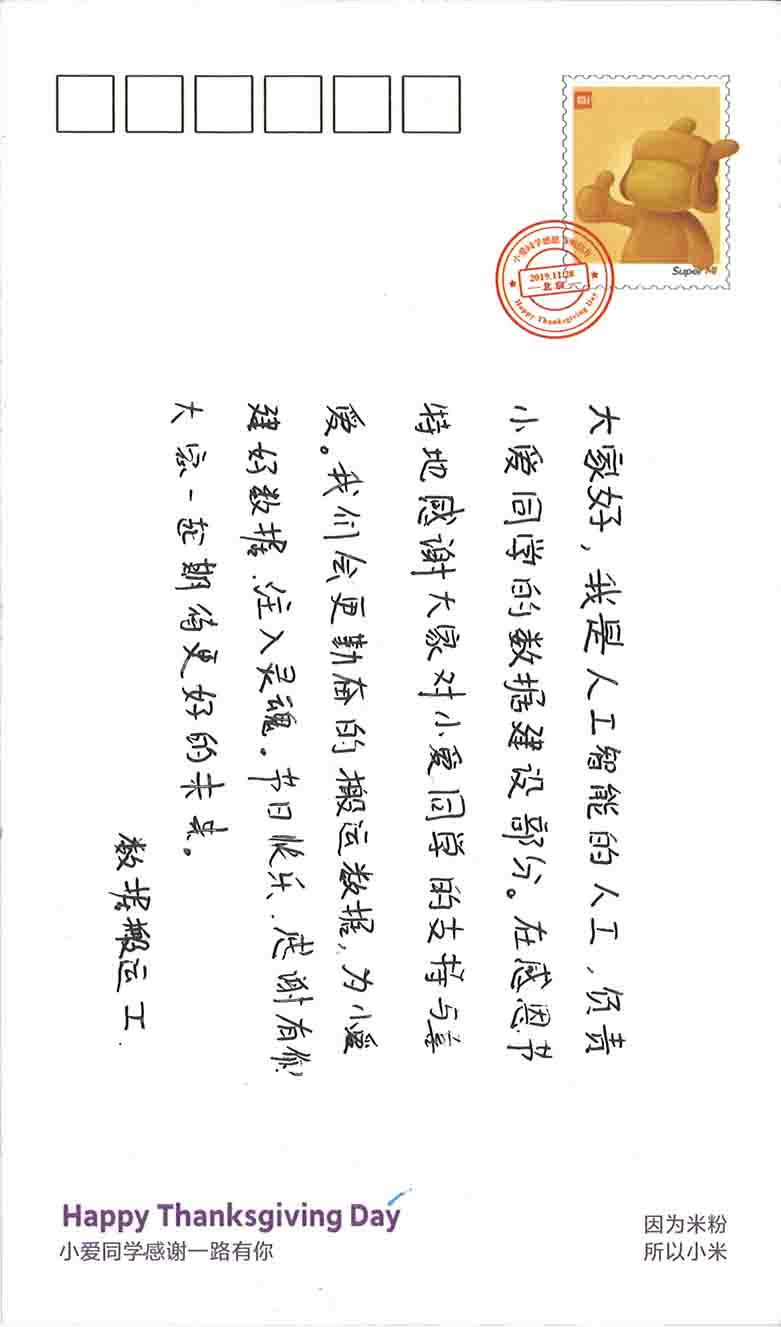 MI
Super MI
2019.11.28
北京
Happy Thanksgiving Day
大家好，我是人工智能的人工、负责
小爱同学的数据建设部分。在感恩节
特地感谢大家对小爱同学的支持与喜
爱。我们会更勤奋的搬运数据，为小爱
建好数据、注入灵魂。节日快乐、感谢有你！
大家一起期待更好的未来。
数据搬运工.
Happy Thanksgiving Day
小爱同学感谢一路有你
因为米粉
所以小米